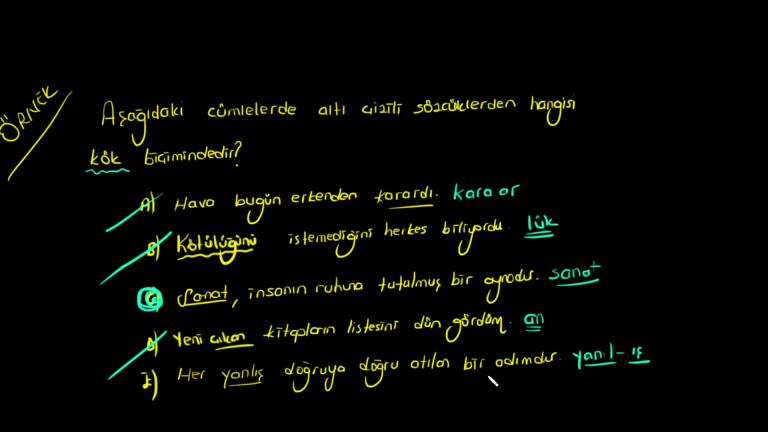 ÖRNEK
Aşağıdaki cümlelerde altı çizili sözcüklerden hangisi
kök biçimindedir?
A) Hava bugün erkenden karardı. kara ar
B) Kötülüğünü istemediğini herkes biliyordu. lük
C) Sanat, insanın ruhuna tutulmuş bir aynadır. sanat
D) Yeni çıkan kitapların listesini dün gördüm. an
E) Her yanlış doğruya doğru atılan bir adımdır. yanıl-ış